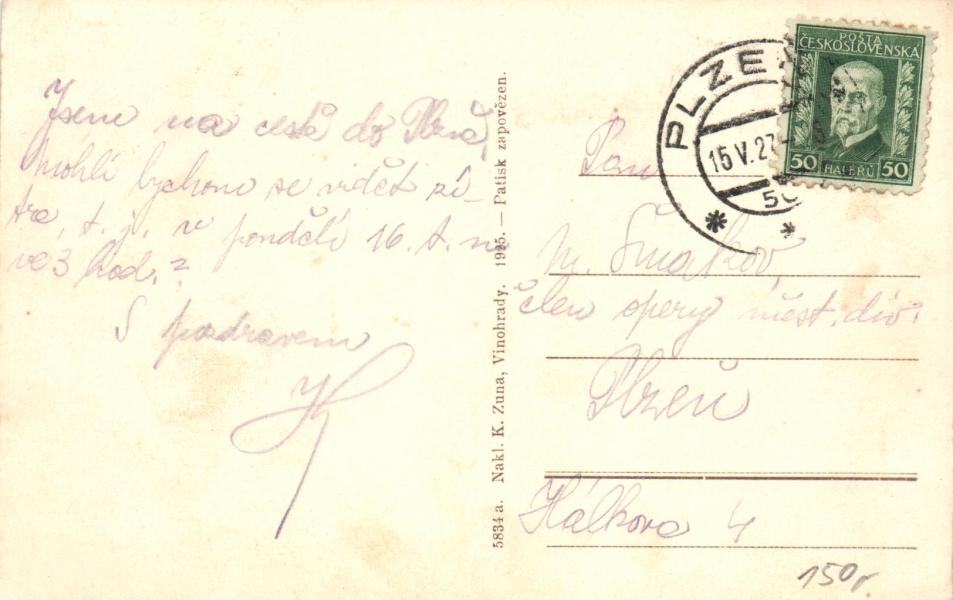 Jsem na cestě do Plzně,
mohli bychom se vidět zí-
tra, t. j. v pondělí 16. t. m.
ve 3 hod.?
S pozdravem
5834 a. Nakl. K. Zuna, Vinohrady. 1925. — Patisk zapovězen.
PLZE
15 V. 27
POŠTA
ČESKOSLOVENSKA
50 HALÉŘŮ 50
Pan
člen opery měst. div.
Plzeň
Hálkova 4
150,